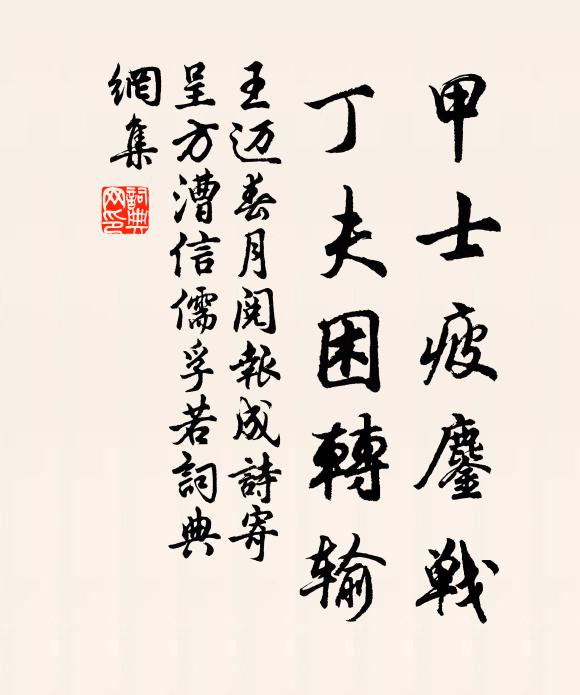 甲士疲鏖戰
丁夫困轉輸
王迈春月閱報成詩寄
呈方漕信儒孚若詞典
網集
詞典網印